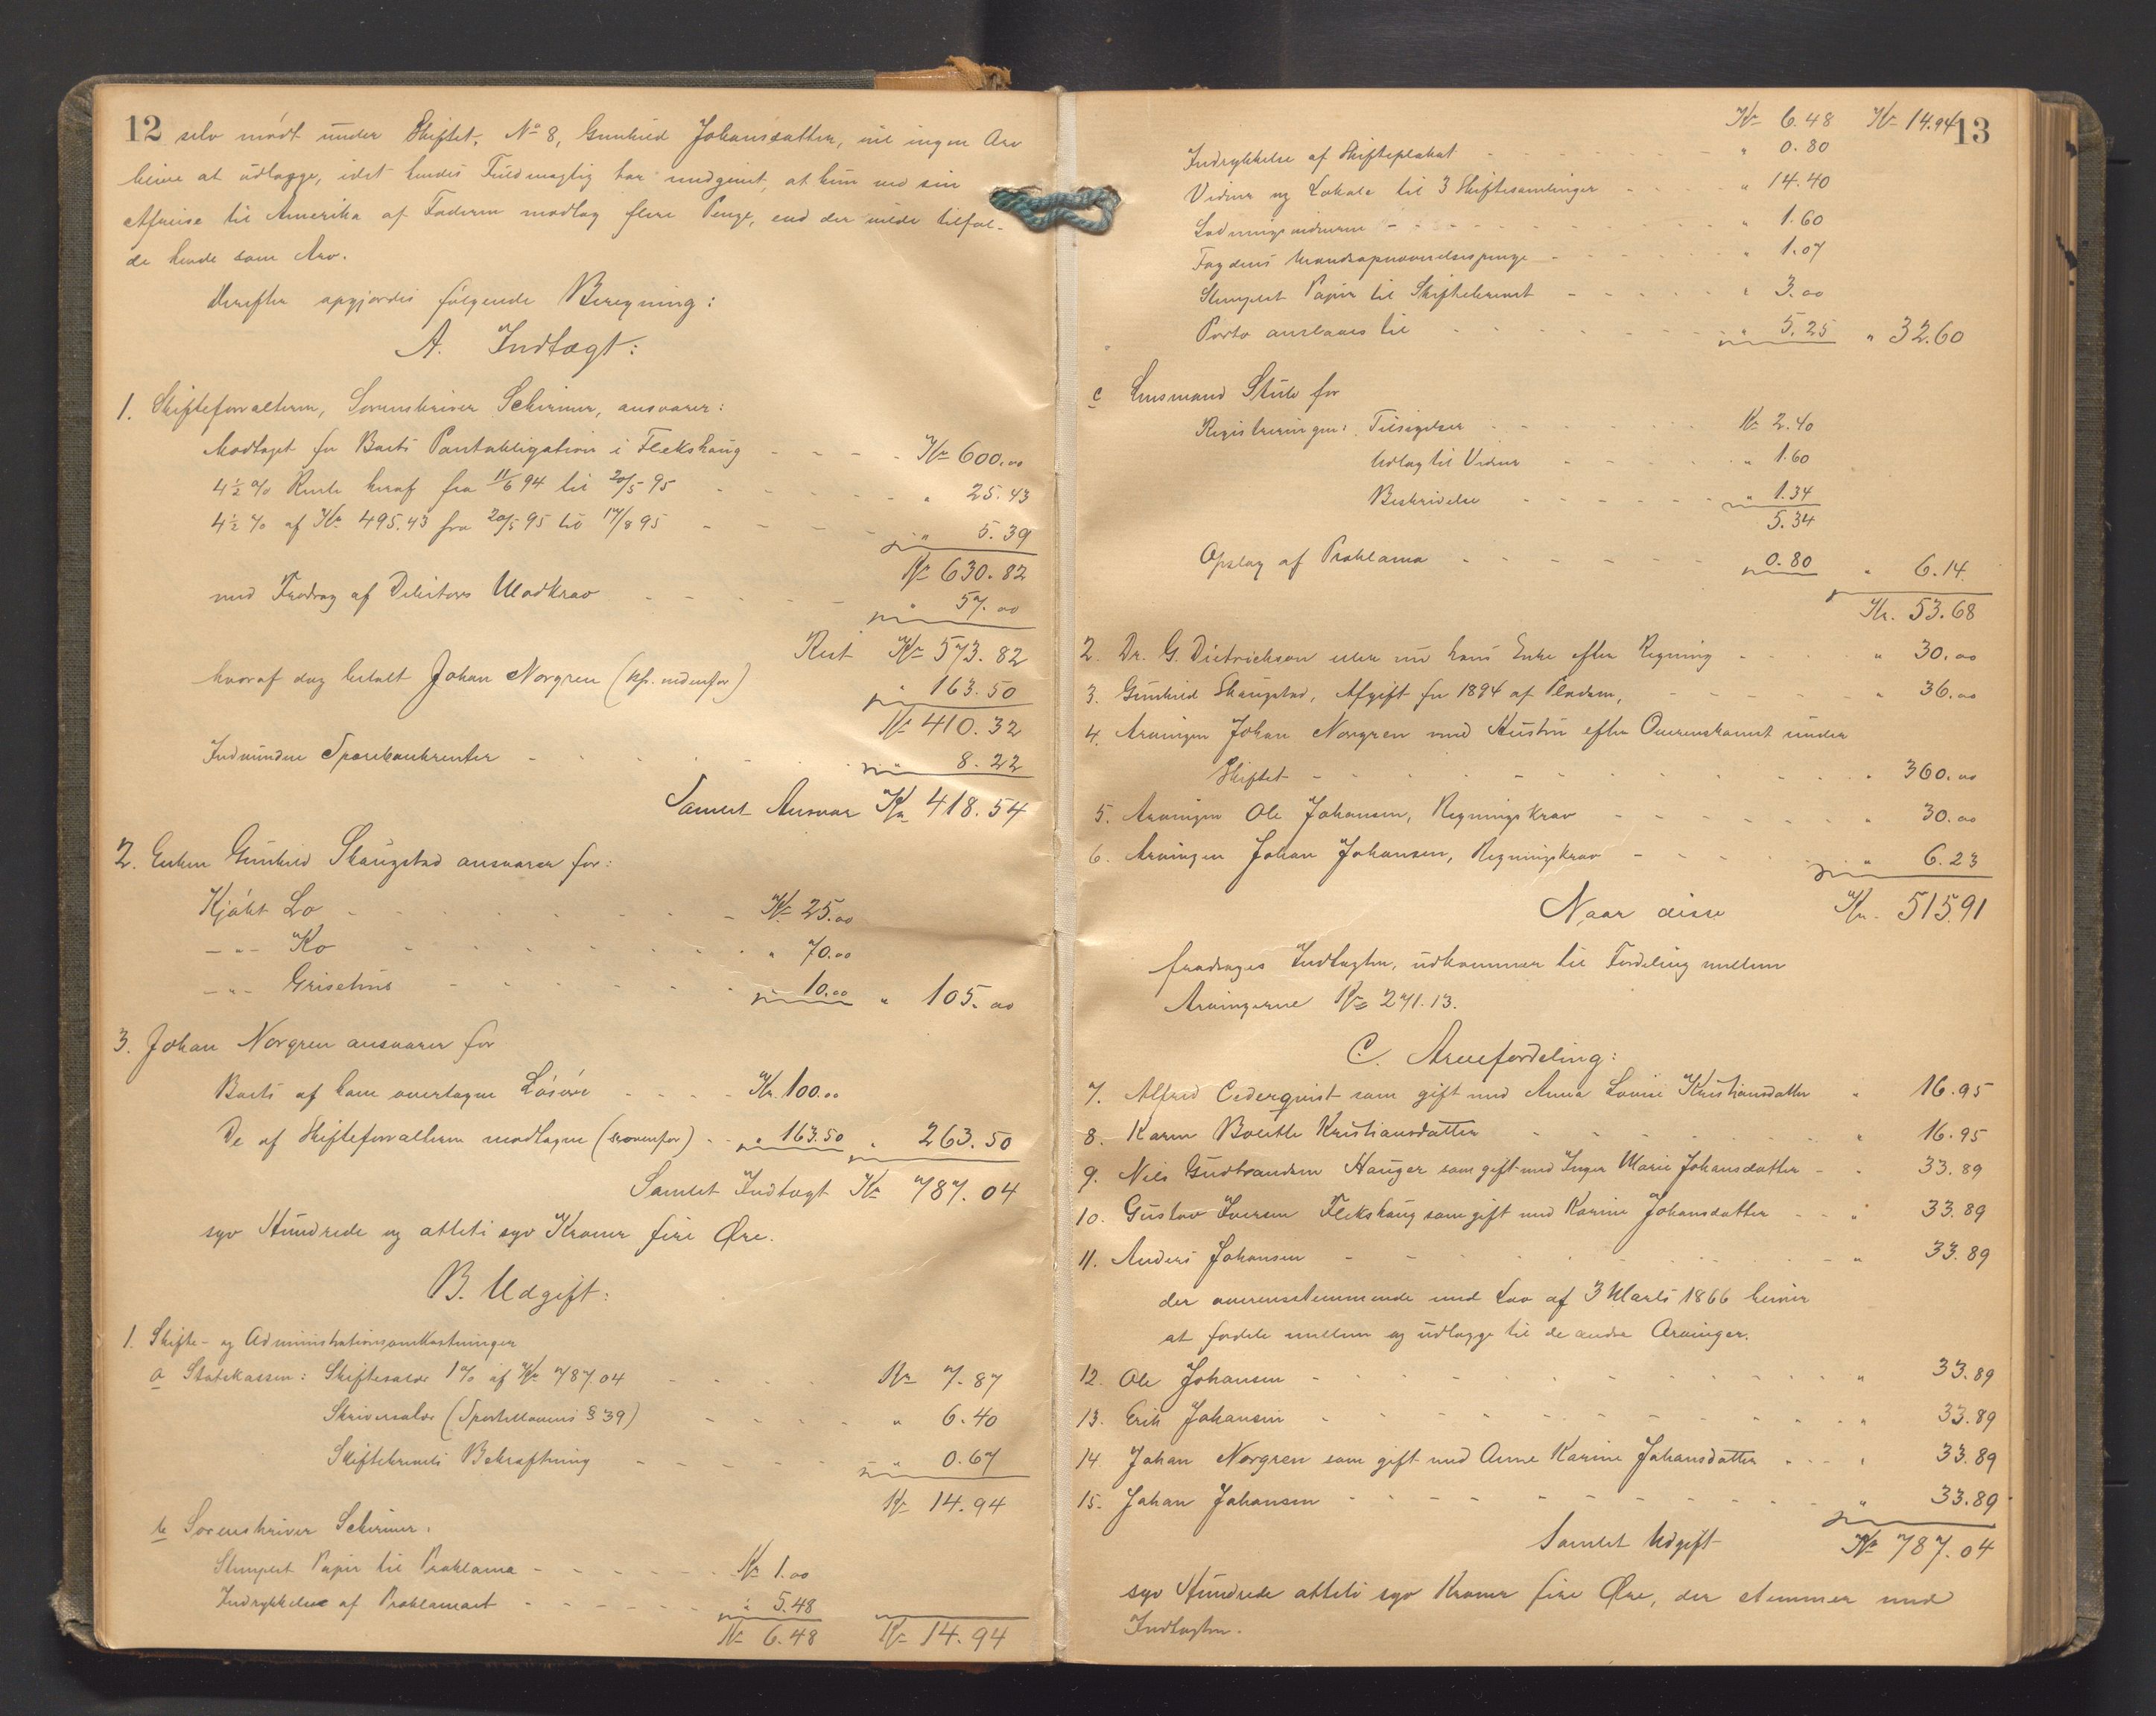 12 selv mødt under Skiftet. No 8, Gunhild Johansdatter, vil ingen Arv
blive at udlægge, idet hendes Fuldmægtig har medgivet, at hun ved sin
Afreise til Amerika af Faderen modtog flere Penge, end der vilde tilfal-
de hende som Arv.
Derefter opgjordes følgende Beregning:
A. Indtægt:
1. Skifteforvalteren, Sorenskriver Schirmer, ansvarer:
Modtaget for Boets Pantobligation i Flekshaug - - - - Kr 600.00
4½ % Rente heraf fra 11/6 94 til 20/5 95 - - - " 25.43
4½ % af Kr. 495.43 fra 20/5 95 til 17/8 95 - - - " 5.39
Kr 630.82
med Fradrag af Debitors Modkrav - - - " 57.00
Rest Kr 573.82
hvoraf dog betalt Johan Norgren (kfr. nedenfor) " 163.50
Kr 410.32
Indvundne Sparebankrenter - - - " 8.22
Samlet Ansvar Kr 418.54
2. Enken Gunhild Skaugstad ansvarer for:
Kjøbt Lo - - - Kr 25.00
-"- Ko - - - " 70.00
-"- Grisehus - - - 10.00 " 105.00
3. Johan Norgren ansvarer for
Boets af ham overtagne Løsøre - - - Kr. 100.00
De af Skifteforvalteren modtagne (ovenfor) - - " 163.50 " 263.50
Samlet Indtægt Kr 787.04
syv Hundrede og otteti syv Kroner fire Øre.
B. Udgift:
1. Skifte- og Administrationsomkostninger
a Statskassen: Skiftesalær 1 % af Kr 787.04 - - - Kr 7.87
Skriversalær (Sportellovens § 39) - - - " 6.40
Skiftebrevets Bekræftning - - - " 0.67
Kr 14.94
b Sorenskriver Schirmer:
Stemplet Papir til Proklama - - - Kr 1.00
Indrykkelse af Proklamaet - - - " 5.48
Kr 6.48 Kr 14.94
Kr 6.48 Kr 14.94 13
Indrykkelse af Skifteplakat - - - " 0.80
Vidner og Lokale til 3 Skiftesamlinger - - - " 14.40
Lodningsvidnerne - - - " 1.60
Fogdens - - - " 1.07
Stemplet Papir til Skiftebrevet - - - " 3.00
Porto anslaaes til - - - " 5.25 " 32.60
c Lensmand Stub for
Registreringen: Tilsigelser - - - Kr 2.40
Udlæg til Vidner - - - " 1.60
Beskrivelse - - - " 1.34
5.34
Opslag af Proklama - - - 0.80 " 6.14
Kr. 53.68
2. Dr. G. Dietrichson eller nu hans Enke efter Regning - - - " 30.00
3. Gunhild Skaugstad, Afgift for 1894 af Pladsen, - - - " 36.00
4. Arvingen Johan Norgren med Hustru efter Overenskomst under
Skiftet - - - " 360.00
5. Arvingen Ole Johansen, Regningskrav - - - " 30.00
6. Arvingen Johan Johansen, Regningskrav - - - " 6.23
Naar disse Kr. 515.91
fradrages Indtægten, udkommer til Fordeling mellem
Arvingerne Kr 271.13.
C. Arvefordeling:
7. Alfred Cederqvist som gift med Anna Lovise Kristiansdatter " 16.95
8. Karen Bolette Kristiansdatter - - - " 16.95
9. Nils Gudbrandsen Hauger som gift med Inger Marie Johansdatter - " 33.89
10. Gustav Iversen Flekshaug som gift med Karine Johansdatter - - " 33.89
11. Anders Johansen - - - " 33.89
der overensstemmende med Lov af 3 Marts 1866 bliver
at fordele mellem og udlægge til de andre Arvinger.
12. Ole Johansen - - - " 33.89
13. Erik Johansen - - - " 33.89
14. Johan Norgren som gift med Anne Karine Johansdatter - - - " 33.89
15. Johan Johansen - - - " 33.89
Samlet Udgift Kr 787.04
syv Hundrede otteti syv Kroner fire Øre, der stemmer med
Indtægten.